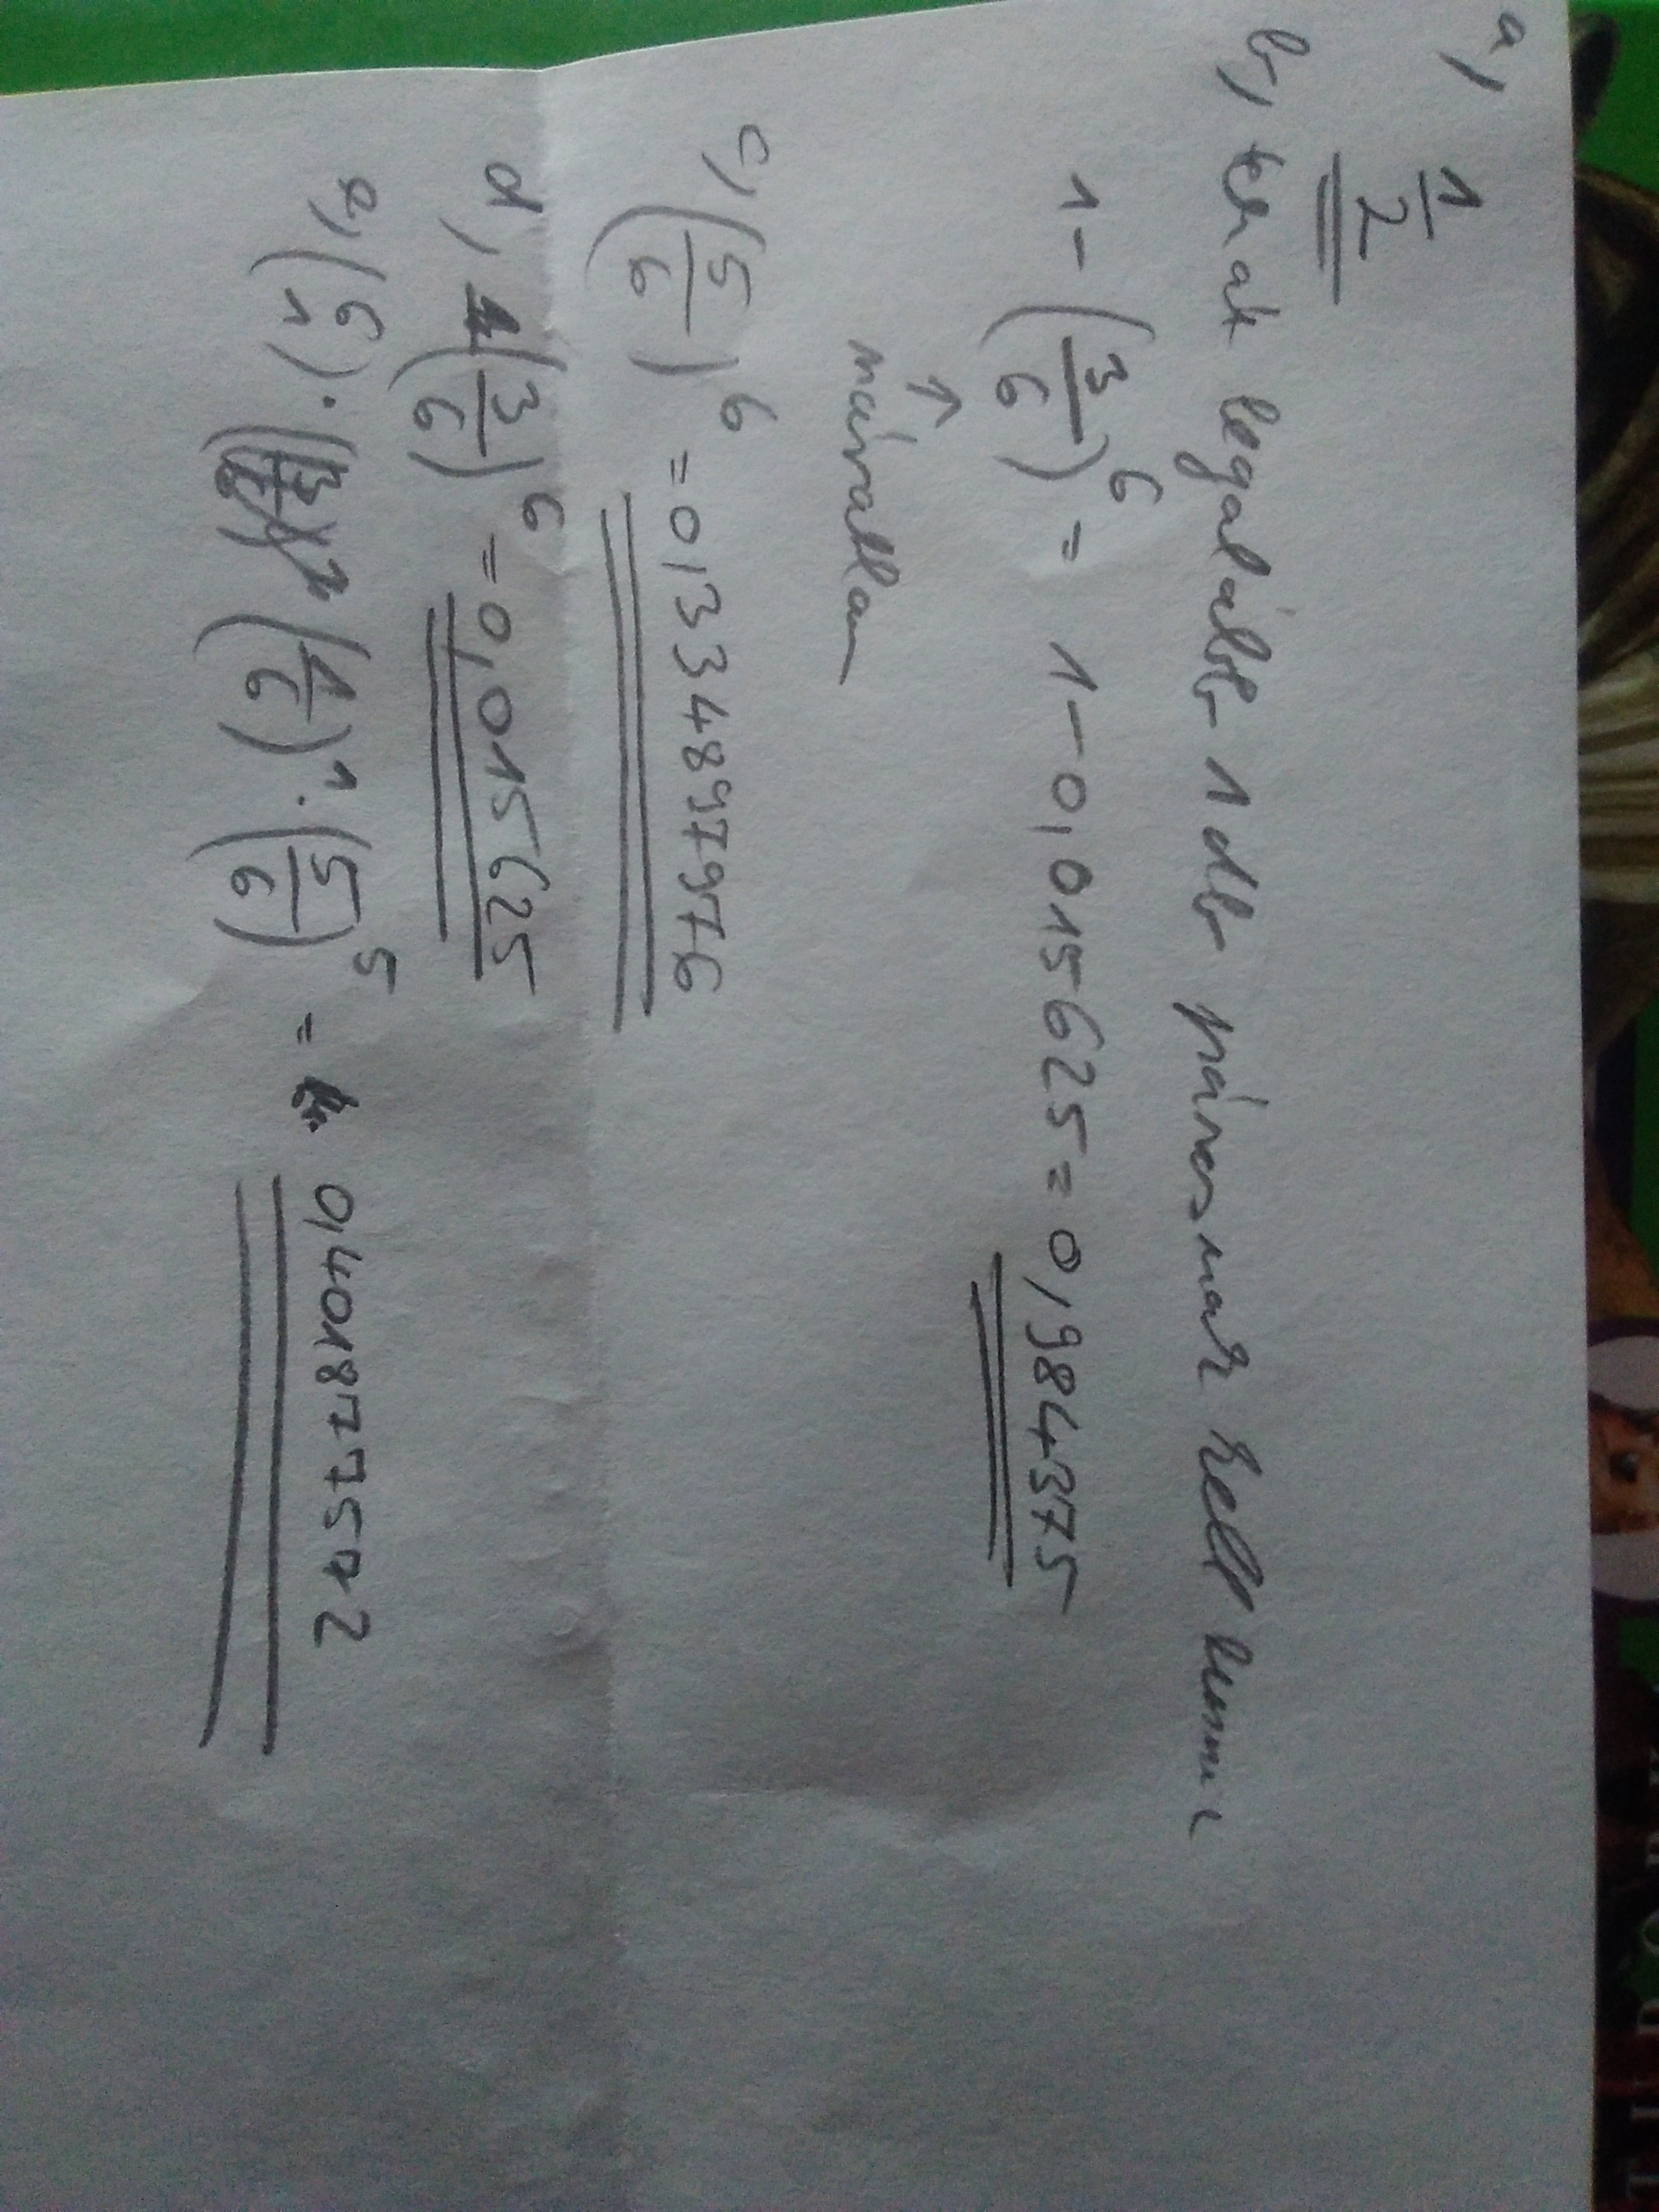 a, 1/2
b, csak legalább 1 db párosnak kell lenni
1 - (3/6)^6 = 1 - 0,015625 = 0,984375
↑
páratlan
c, (5/6)^6 = 0,334897976
d, (3/6)^6 = 0,015625
e, (6 1) · (1/6)^1 · (5/6)^5 = 0,401877572